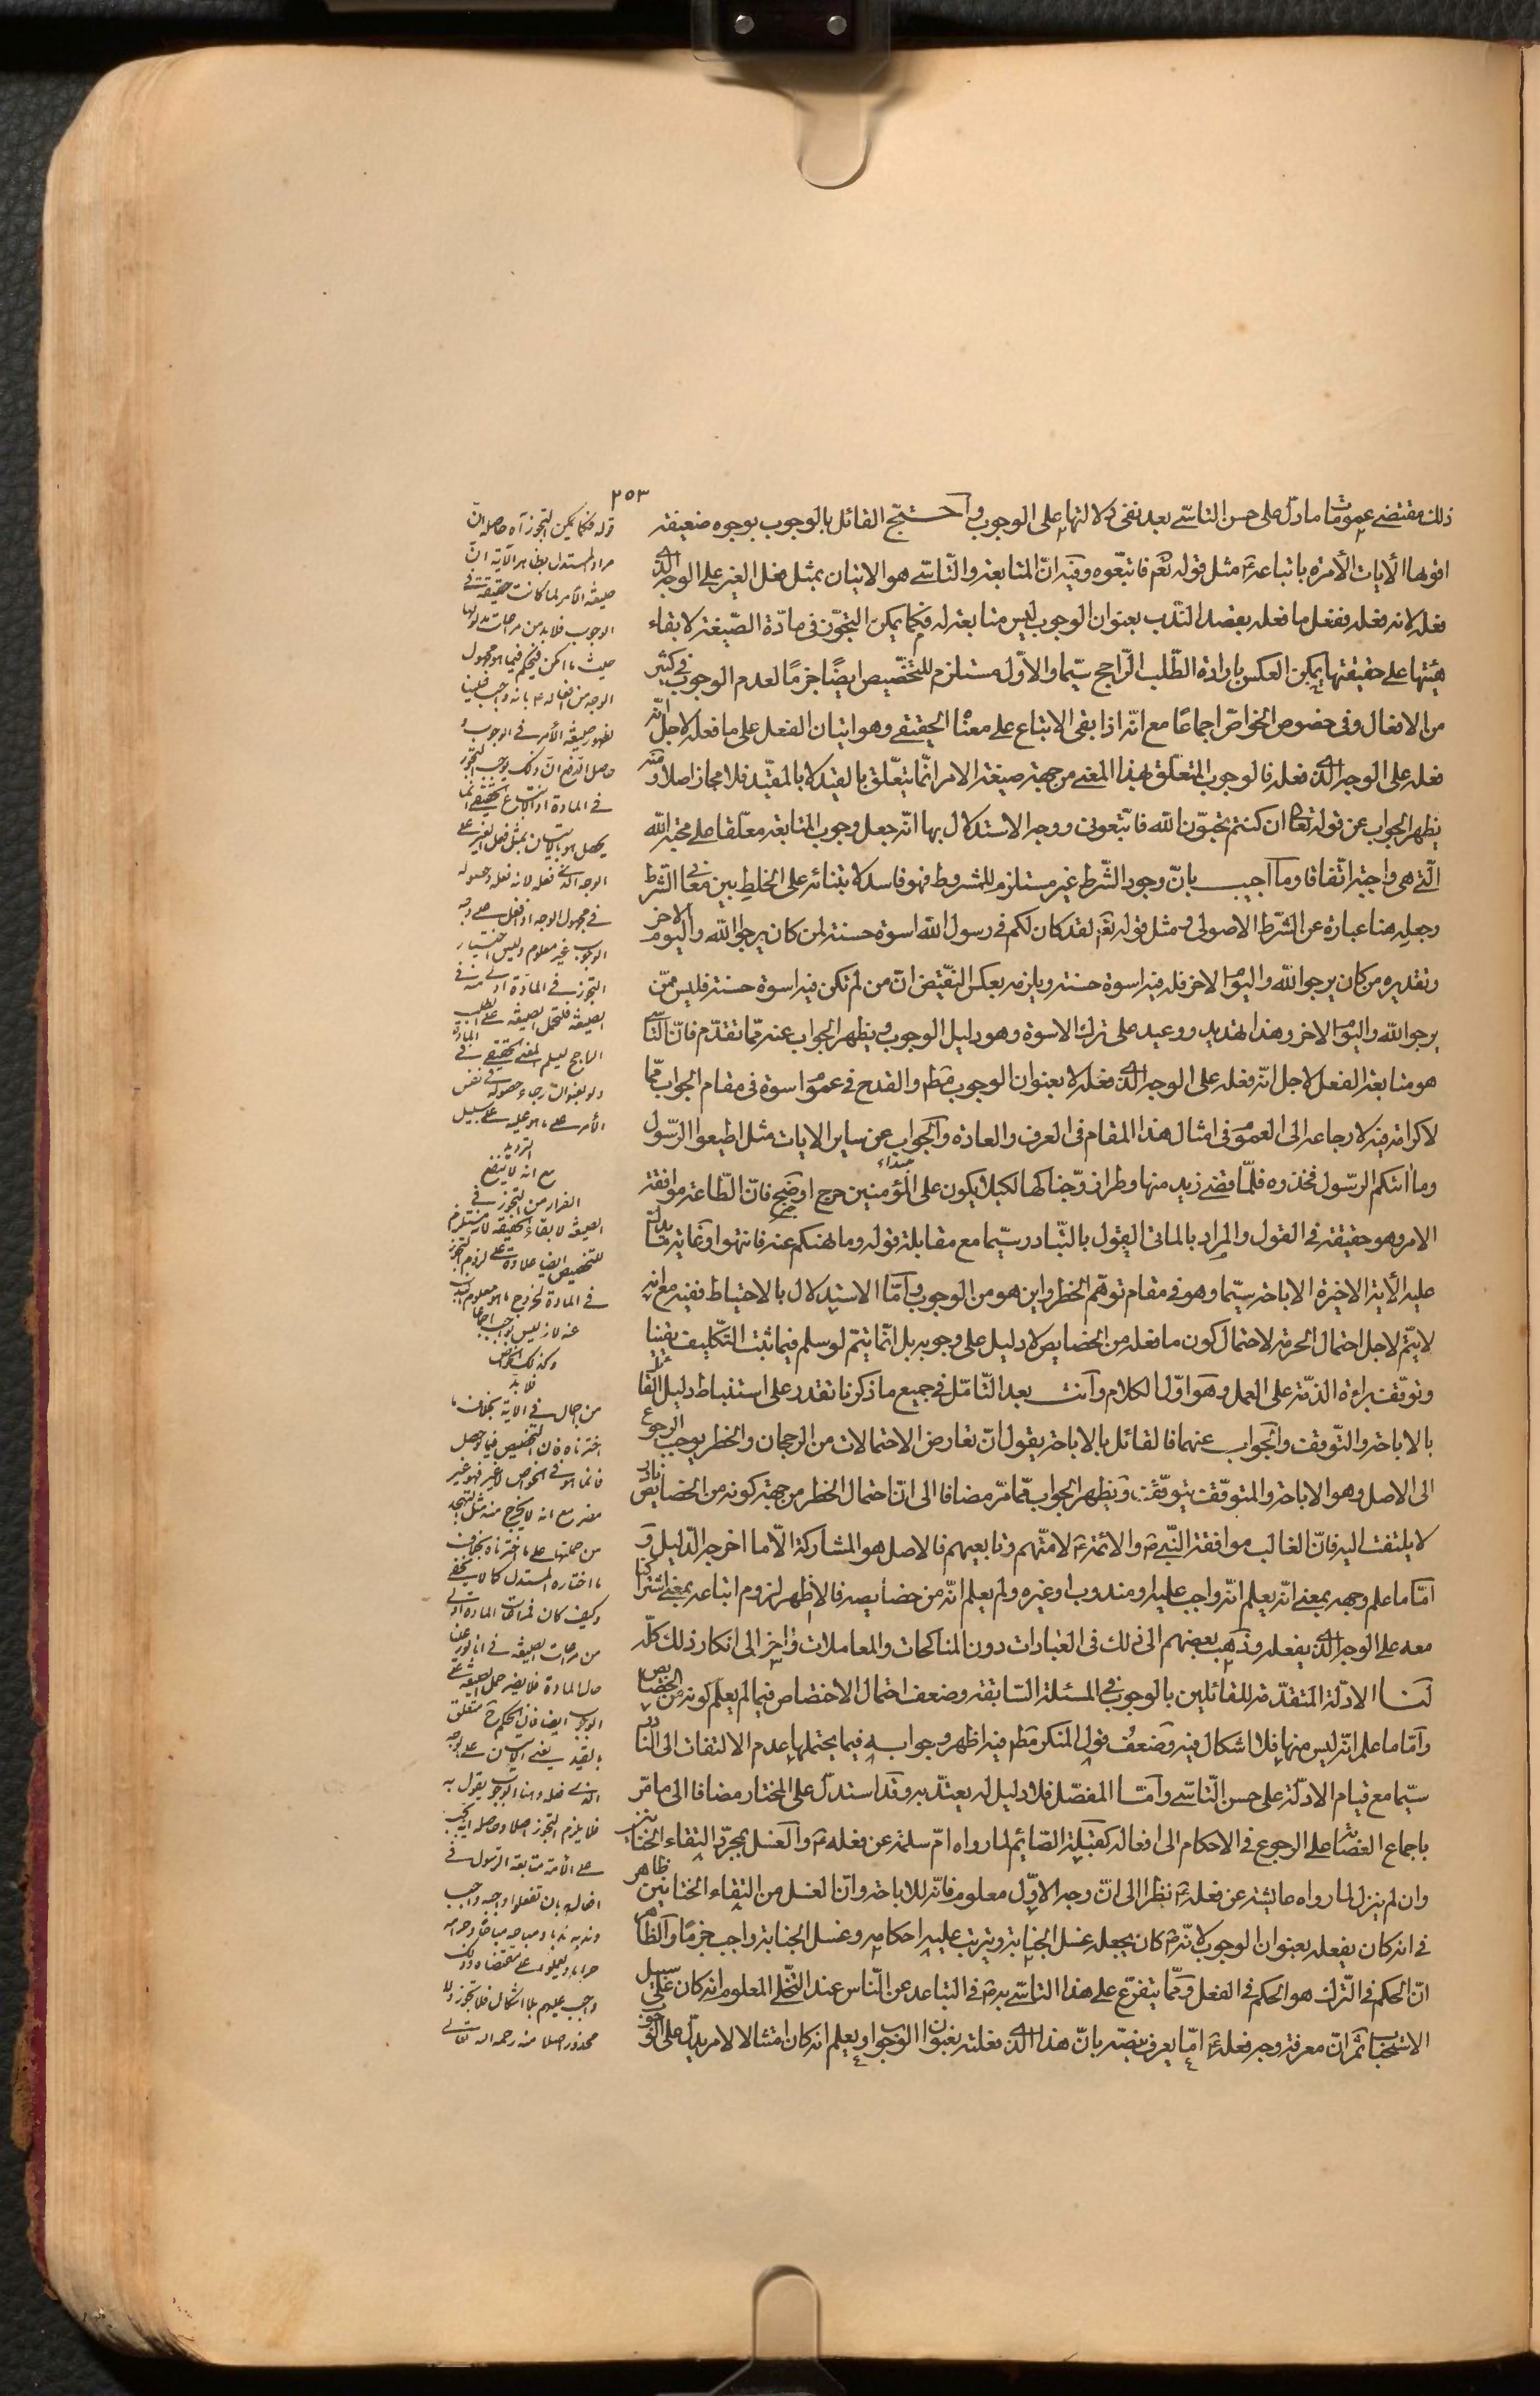 ٢٥٣
ذلك مقتضى عمومات ما دل على حسن التاسّى بعد نفى دلالتها على الوجوب واحتجّ القائل بالوجوب بوجوه ضعيفة
اقوها الآيات الآمرة باتباعه ع مثل قوله تعم فاتبعوه وفيه انّ المتابعة والتّاسّى هو الاتيان بمثل فعل الغير على الوجه الّذى
فعله لانه فعله ففعل ما فعله بقصد النّدب بعنوان الوجوب ليس متابعة له فكما يمكن التجوّز فى مادّة الصّيغة لابقاء
هيئتها على حقيقتها يمكن العكس بارادة الطّلب الرّاجح سيّما والاوّل مستلزم للتخصيص ايضًا جزمًا لعدم الوجوب فى كثير
من الافعال وفى خصوص الخواصّ اجماعًا مع انّه اذا بقى الاتباع على معناه الحقيقى وهو اتيان الفعل على ما فعله لاجل انّه
فعله على الوجه الّذى فعله فالوجوب المتعلّق بهذا المعنى من جهة صيغة الامر انّما يتعلّق بالقيد لا بالمقيّد فلا مجاز اصلا ومنه
يظهر الجواب عن قوله تعالى ان كنتم تحبّون الله فاتّبعونى ووجه الاستدلال بها انّه جعل وجوب المتابعة معلّقا على محبّة الله
الّتى هى واجبة اتّفاقا وما اجيب بانّ وجود الشّرط غير مستلزم للمشروط فهو فاسد لابتنائه على الخلط بين معانى الشرط
وجعله هنا عبارة عن الشّرط الاصولى ومثل قوله تعم لقد كان لكم فى رسول الله اسوة حسنة لمن كان يرجوا الله واليوم الاخر
وتقديره من كان يرجوا الله واليوم الاخر فله فيه اسوة حسنة ويلزمه بعكس النّقيض انّ من لم تكن فيه اسوة حسنة فليس ممّن
يرجوا الله واليوم الاخر وهذا تهديد ووعيد على ترك الاسوة وهو دليل الوجوب ويظهر الجواب عنه ممّا تقدّم فانّ التّاسّى
هو متابعة الفعل لاجل انّه فعله على الوجه الّذى فعله لا بعنوان الوجوب مطم والقدح فى عموم اسوة فى مقام الجواب ممّا
لا كرامة فيه لارجاعه الى العموم فى امثال هذا المقام فى العرف والعادة والجواب عن ساير الايات مثل اطيعوا الرّسول
وما اتيكم الرّسول فخذوه فلمّا قضى زيد منها وطرا زوّجناكها لكيلا يكون على المؤمنين حرج اوضح فانّ الطّاعة موافقة
الامر وهو حقيقة فى القول والمراد بالماتى القول بالتّبادر سيّما مع مقابلة قوله وما نهيكم عنه فانتهوا وغاية ما يدلّ
عليه الآية الاخيرة الاباحة سيّما وهو فى مقام توهّم الحظر واين هو من الوجوب وامّا الاستدلال بالاحتياط ففيه مع انه
لا يتمّ لاجل احتمال الحرمة لاحتمال كون ما فعله من الخصايص لا دليل على وجوبه بل انّما يتمّ لو سلم فيما ثبت التّكليف يقينا
وتوقّف براءة الذمّة على العمل وهو اوّل الكلام وانت بعد التّامّل فى جميع ما ذكرنا تقدر على استنباط دليل القائل
بالاباحة والتّوقف والجواب عنهما فالقائل بالاباحة يقول انّ تعارض الاحتمالات من الرجحان والحظر يوجب الرجوع
الى الاصل وهو الاباحة والمتوقّف يتوقّف ويظهر الجواب ممّا مرّ مضافا الى انّ احتمال الحظر من جهة كونه من الخصايص نادر
لا يلتفت اليه فانّ الغالب موافقة النّبى ص والائمة ع لامّتهم وتابعيهم فالاصل هو المشاركة الّا ما اخرجه الدّليل و
امّا ما علم وجهه بمعنى انّه يعلم انّه واجب عليه او مندوب او غيره ولم يعلم انّه من خصايصه فالاظهر لزوم اتباعه بمعنى اشتراكنا
معه على الوجه الّذى يفعله وذهب بعضهم الى ذلك فى العبادات دون المناكحات والمعاملات واخر الى انكار ذلك كلّه
لنا الادلّة المتقدّمة للقائلين بالوجوب فى المسئلة السّابقة وضعف احتمال الاختصاص فيما لم يعلم كونه من الخصايص
وامّا ما علم انّه ليس منها فلا اشكال فيه وضعف قول المنكر مطم فيه اظهر وجوابه فيما يحتملها عدم الالتفات الى النّادر
سيّما مع قيام الادلّة على حسن التّاسّى وامّا المفصّل فلا دليل له يعتدّ به وقد استدلّ على المختار مضافا الى ما مرّ
باجماع العصابة على الرجوع فى الاحكام الى افعاله كقبلة الصّائم لما رواه امّ سلمة عن فعله ص والغسل بمجرّد التقاء الختانين
وان لم ينزل لما رواه عايشة عن فعله ص نظرا الى انّ وجه الاوّل معلوم فانّه للاباحة وانّ الغسل من التقاء الختانين ظاهر
فى انه كان يفعله بعنوان الوجوب لانّه ص كان يجعله غسل الجنابة ويترتب عليه احكامه وغسل الجنابة واجب جزمًا والظّاهر
انّ الحكم فى التّرك هو الحكم فى الفعل وممّا يتفرّع على هذا التّاسّى به ص فى التباعد عن النّاس عند التّخلّى المعلوم انه كان على سبيل
الاستحباب ثمّ انّ معرفة وجه فعله ع امّا يعرف بنصّه بانّ هذا الّذى فعلته بعنوان الوجوب او يعلم انه كان امتثالا لامر يدلّ على الوجوب
قوله فكما يمكن التجوز آه حاصله ان
مراد المستدل بظاهر الآية ان
صيغة الأمر لما كانت حقيقة فى
الوجوب فلا بد من مراعات مدلولها
حيث ما امكن فيحكم فيما هو مجهول
الوجه من افعاله ع بانه واجب علينا
لظهور صيغة الأمر فى الوجوب و
حاصل الدفع ان ذلك يوجب التجوز
فى المادة اذ الاتباع الحقيقى انما
يحصل هو بالاتيان بمثل فعل الغير على
الوجه الذى فعله لانه فعله وحصوله
فى مجهول الوجه اذ افعل على وجه
الوجوب غير معلوم وليس اختيار
التجوز فى المادة اولى منه فى
الصيغة فلتحمل الصيغة على الطلب
الراجح ليسلم المعنى الحقيقى فى المادة
ولو بعنوان رجاء حصوله فى نفس
الأمر على ما هو عليه على سبيل
الترديد
مع انه لا ينفع
الفرار من التجوز فى
الصيغة لابقاء الحقيقة لاستلزامه
للتخصيص ايضا علاوة على لزوم التجوز
فى المادة لخروج ما هو معلوم
عنه لانه ليس بواجب اجماعا
وكذلك الخواص
فلا بد
من اجمال فى الاية بخلاف ما
اخترناه فان التخصيص فيما لو حصل
فانما هو فى الخواص لا غير فهو غير
مضر مع انه لا يخرج منه مثل التهجد
من جملتها على ما اخترناه بخلاف
ما اختاره المستدل كما لا يخفى
وكيف كان فمراعات المادة اولى
من مراعات الصيغة
حال المادة فلا يضر حمل الصيغة على
الوجوب ايضا فان الحكم متعلق
بالقيد يعنى الاتيان على الوجه
الذى فعله وهذا الوجوب يقول به
فلا يلزم التجوز اصلا وحاصله انه يجب
على الأمة متابعة الرسول فى
افعاله بان تفعلوا واجبه واجبا
وندبه ندبا ومباحه مباحا وحرامه
حراما ويعملوا على مقتضاه وذلك
واجب عليهم بلا اشكال فلا تجوز ولا
محذور اصلا منه رحمه الله تعالى